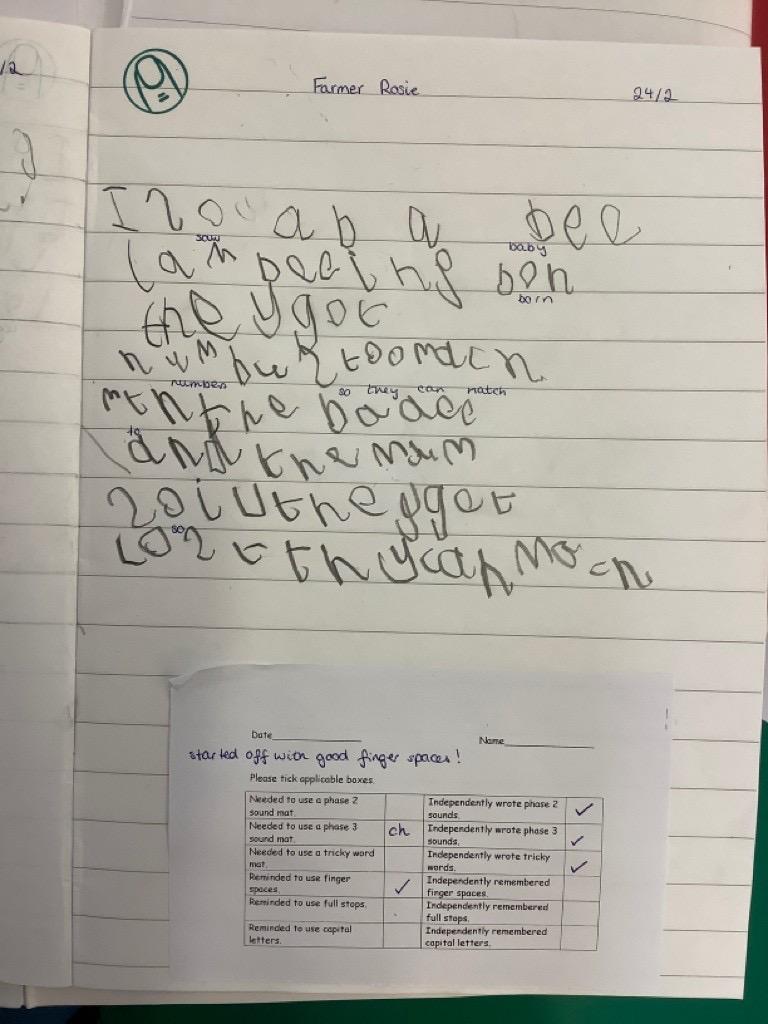 Farmer Rosie 24/2
I so a b a bee
saw baby
lam beeing bon
born
they got
numbus too mach
numbers so they can match
mth the baaee
to
and the mum
so
lost thycan mach
Date Name
started off with good finger spaces!
Please tick applicable boxes.
Needed to use a phase 2 sound mat. Independently wrote phase 2 sounds. ✓
Needed to use a phase 3 sound mat. ch Independently wrote phase 3 sounds. ✓
Needed to use a tricky word mat. Independently wrote tricky words. ✓
Reminded to use finger spaces. ✓ Independently remembered finger spaces.
Reminded to use full stops. Independently remembered full stops.
Reminded to use capital letters. Independently remembered capital letters.